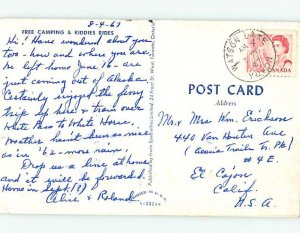 8-4-67
FREE CAMPING & KIDDIES RIDES
Hi! Have wondered about you
two - how and where you are.
We left home June 16 - are
just coming out of Alaska.
Certainly enjoyed the ferry
trip up here & train over
White Pass to White Horse.
Weather hasn't been as nice
as in '62 - more rain.
Drop us a line at home
and it will be forwarded.
Home in Sept. (?)
Celia & Roland
POST CARD
Address
WATSON LAKE
CANADA
Mr. & Mrs. Wm. Erickson
440 Van Houten Ave
(Acacia Trailer Pk)
# 4 E.
El Cajon
Calif.
U.S.A.